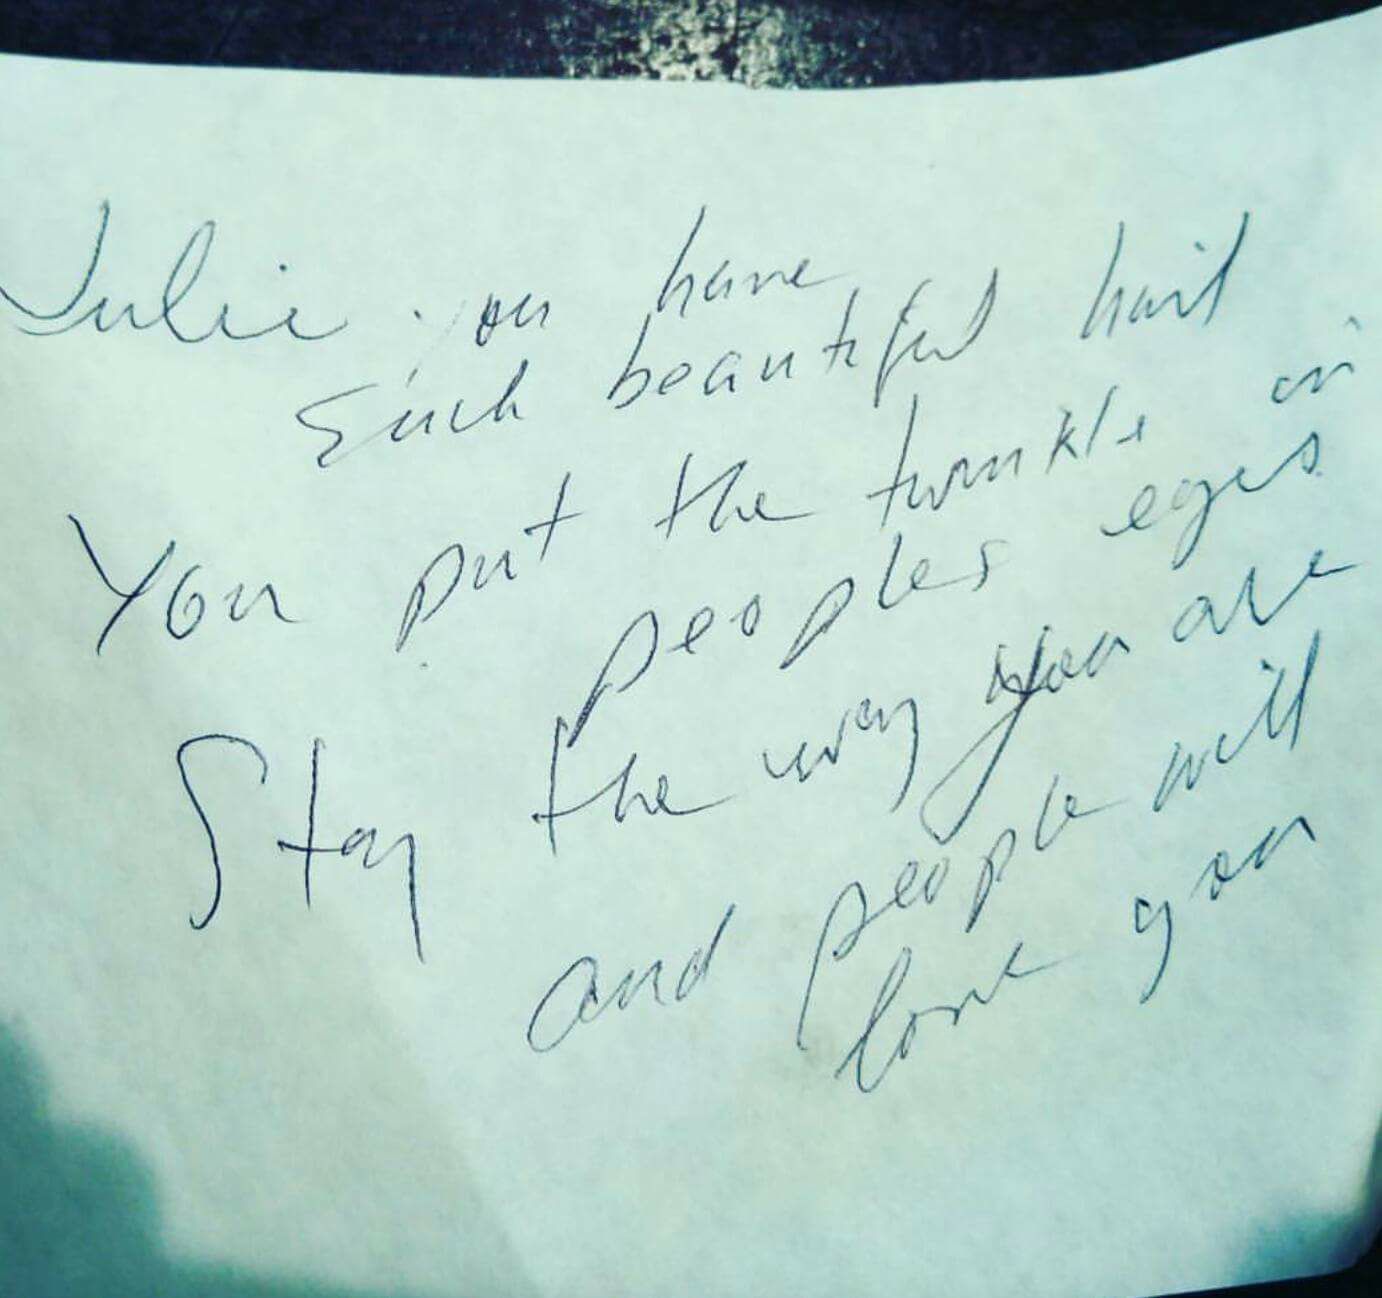 Julie you have
Such beautiful hair
You put the twinkle in
peoples eyes
Stay the way you are
and people will
love you